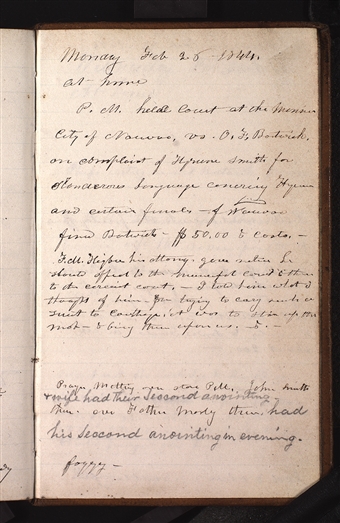 Monday Feb 26 1844.
at home
P. M. held Court at the Mansion
City of Nauvoo, vs. O. F. Bostwick.
on complaint of Hyrum Smith for
slanderous language concerning Hyrum
and certain females of Nauvoo
fined Botwick - $50.00 & costs. -
F. M. Higbee his attorney gave notice he
should appeal to the municipal court & then
to the circuit court. - I told him what I
thought of him for trying to carry such a
suit to Carthage, it was to stir up the
mob & bring them upon us. &c. -
Prayer Meeting over store P.M. John Smith
& wife had their Second anointing
there. over Father Mordy there. had
his second anointing in evening.
foggy -